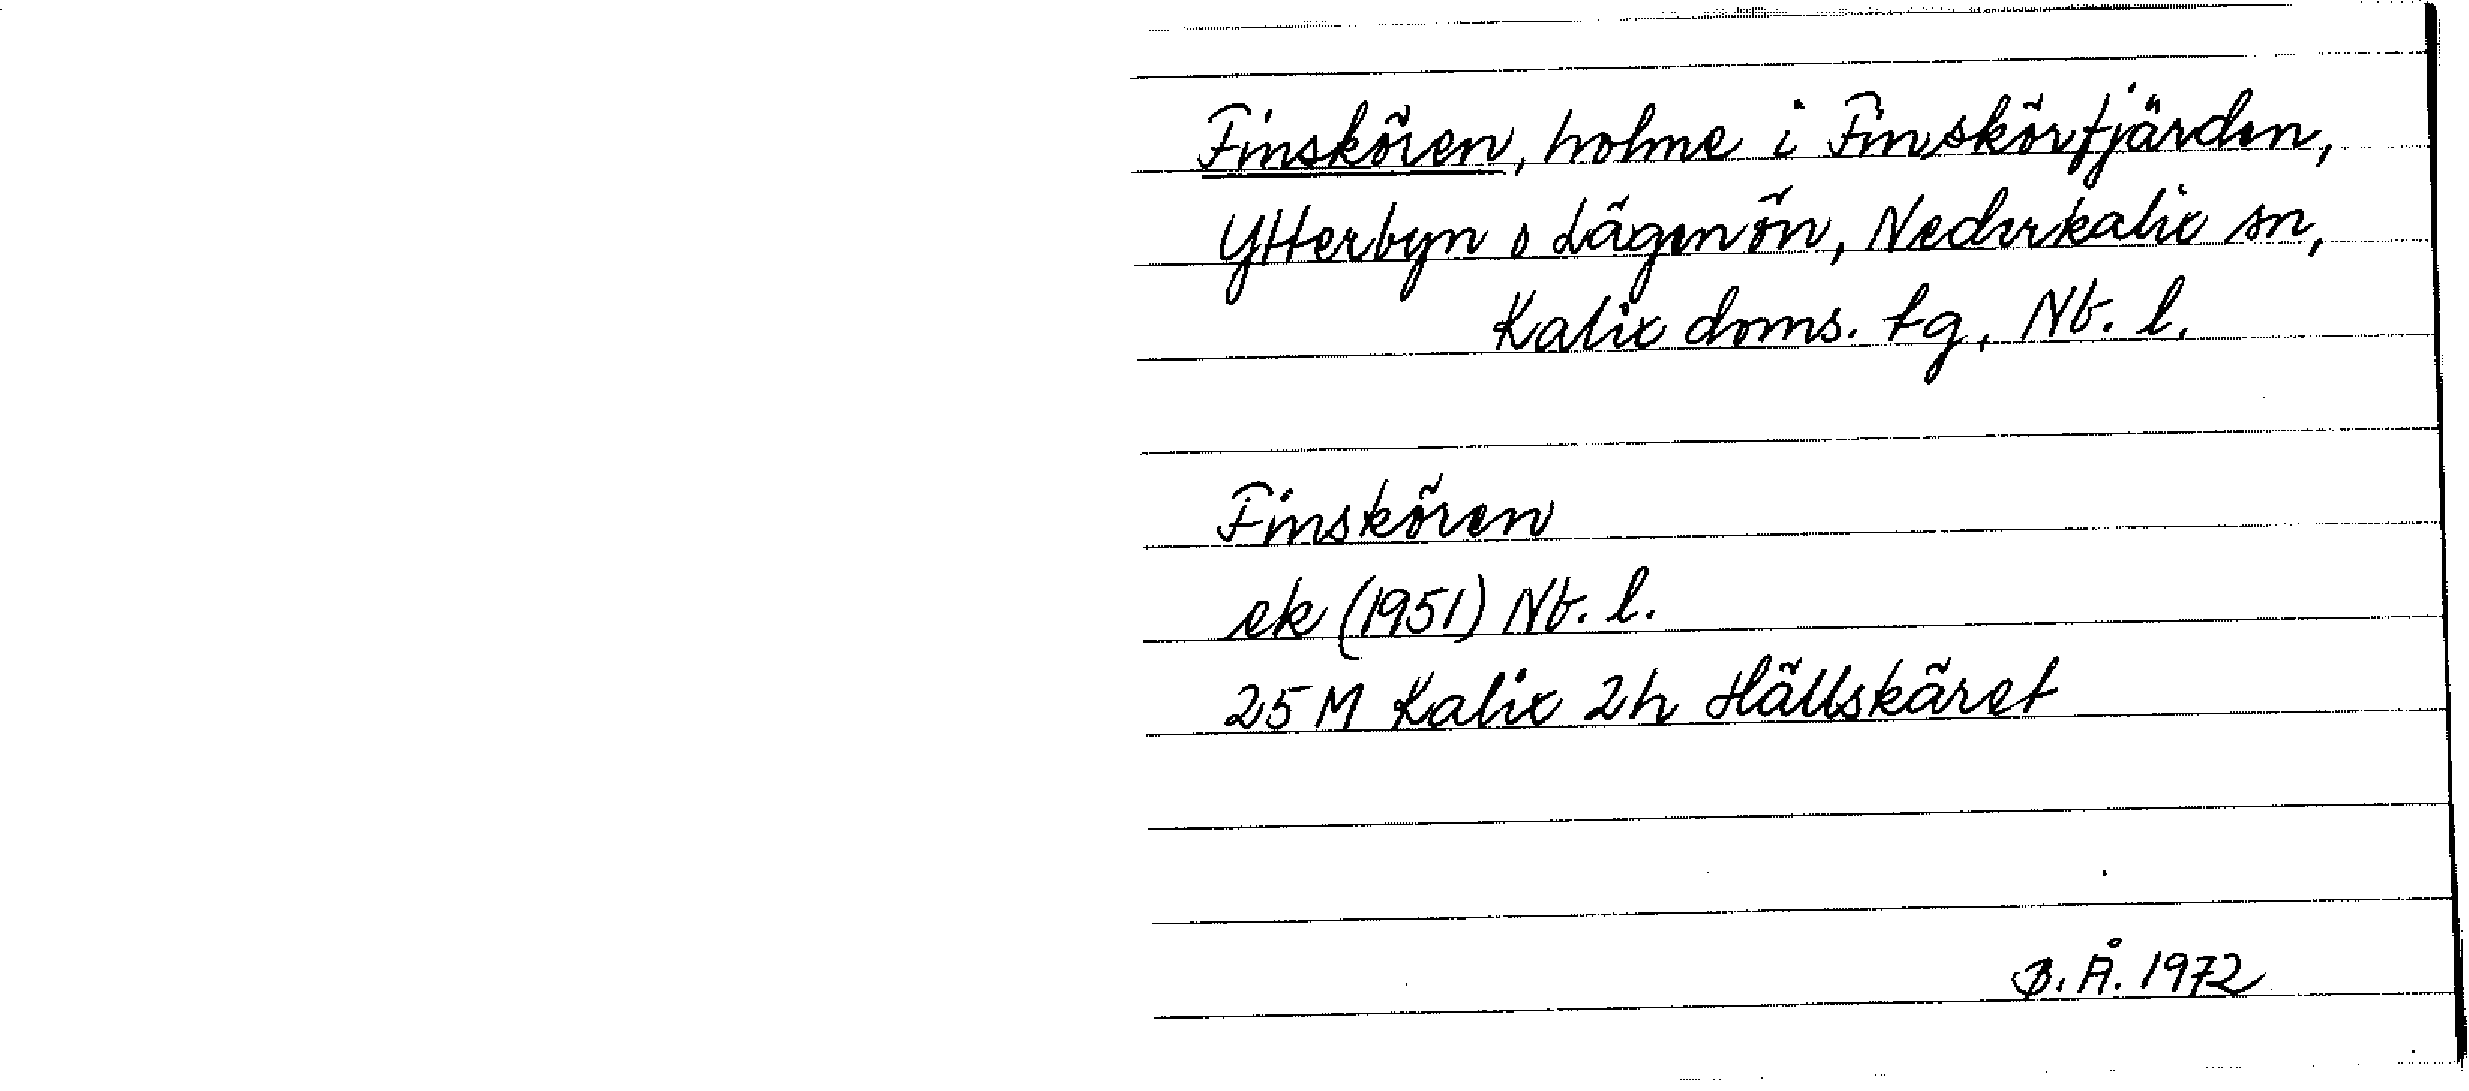 Finskören, holme i Finskörfjärden,
Ytterbyn o Lägenön, Nederkalix sn,
Kalix doms. tg, Nb. l.
Finskören
ek (1951) Nb. l.
25 M Kalix 2h Hällskäret
B. Å. 1972